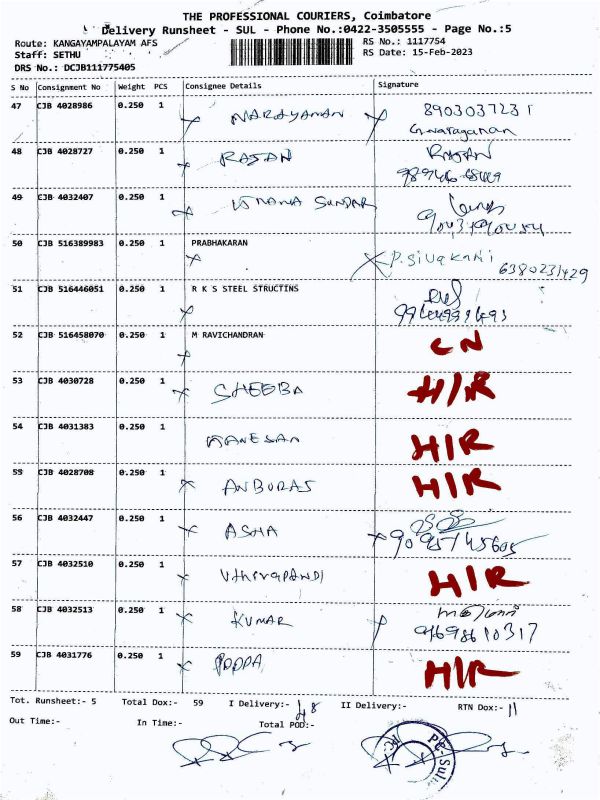 THE PROFESSIONAL COURIERS, Coimbatore
Delivery Runsheet - SUL - Phone No.:0422-3505555 - Page No.:5
Route: KANGAYAMPALAYAM AFS RS No.: 1117754
Staff: SETHU RS Date: 15-Feb-2023
DRS No.: DCJB111775405
S No Consignment No Weight PCS Consignee Details Signature
47 CJB 4028986 0.250 1 NARAYANAN 8903037231
G.Narayanan
48 CJB 4028727 0.250 1 RAJAN RAJAN
49 CJB 4032407 0.250 1 SUNDAR
50 CJB 516389983 0.250 1 PRABHAKARAN
P.Sivakani 6380231429
51 CJB 516446051 0.250 1 R K S STEEL STRUCTINS
52 CJB 516458070 0.250 1 M RAVICHANDRAN CN
53 CJB 4030728 0.250 1 SHEEBA H/R
54 CJB 4031383 0.250 1 H/R
55 CJB 4028708 0.250 1 ANBURAS H/R
56 CJB 4032447 0.250 1 ASHA
9095745605
57 CJB 4032510 0.250 1 H/R
58 CJB 4032513 0.250 1 KUMAR
9698610317
59 CJB 4031776 0.250 1 H/R
Tot. Runsheet:- 5 Total Dox:- 59 I Delivery:- 48 II Delivery:- RTN Dox:- 11
Out Time:- In Time:- Total POD:-